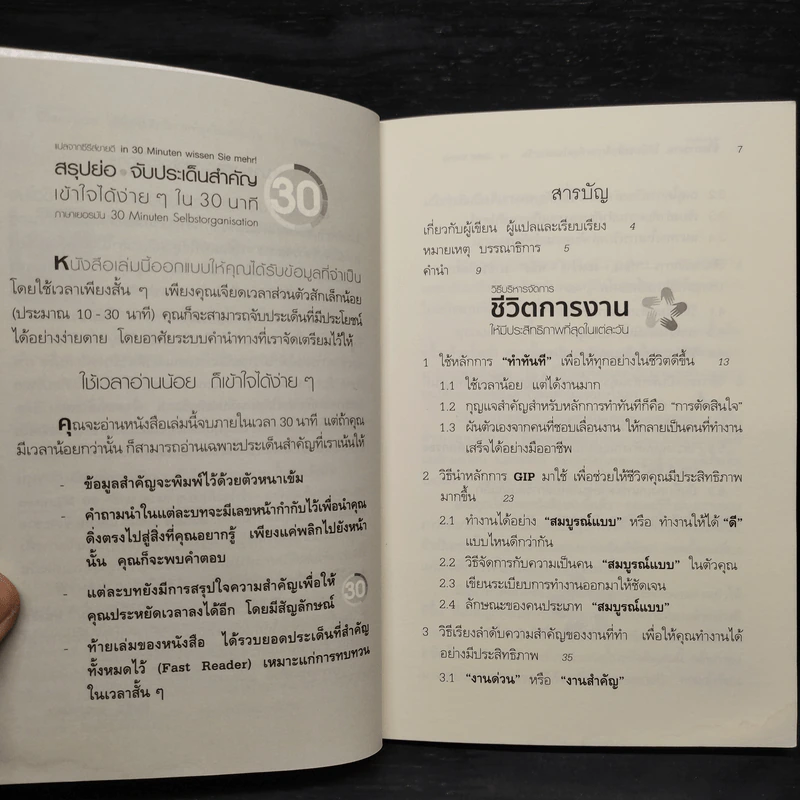 แปลจากซีรีส์ขายดี in 30 Minuten wissen Sie mehr!
สรุปย่อ • จับประเด็นสำคัญ
เข้าใจได้ง่าย ๆ ใน 30 นาที
ภาษาเยอรมัน 30 Minuten Selbstorganisation
30
หนังสือเล่มนี้ออกแบบให้คุณได้รับข้อมูลที่จำเป็น
โดยใช้เวลาเพียงสั้น ๆ เพียงคุณเจียดเวลาส่วนตัวสักเล็กน้อย
(ประมาณ 10 - 30 นาที) คุณก็จะสามารถจับประเด็นที่มีประโยชน์
ได้อย่างง่ายดาย โดยอาศัยระบบคำนำทางที่เราจัดเตรียมไว้ให้
ใช้เวลาอ่านน้อย ก็เข้าใจได้ง่าย ๆ
คุณจะอ่านหนังสือเล่มนี้จบภายในเวลา 30 นาที แต่ถ้าคุณ
มีเวลาน้อยกว่านั้น ก็สามารถอ่านเฉพาะประเด็นสำคัญที่เราเน้นให้
- ข้อมูลสำคัญจะพิมพ์ไว้ด้วยตัวหนาเข้ม
- คำถามนำในแต่ละบทจะมีเลขหน้ากำกับไว้เพื่อนำคุณ
ดิ่งตรงไปสู่สิ่งที่คุณอยากรู้ เพียงแค่พลิกไปยังหน้า
นั้น คุณก็จะพบคำตอบ
- แต่ละบทยังมีการสรุปใจความสำคัญเพื่อให้
คุณประหยัดเวลาลงได้อีก โดยมีสัญลักษณ์ 30
- ท้ายเล่มของหนังสือ ได้รวบยอดประเด็นที่สำคัญ
ทั้งหมดไว้ (Fast Reader) เหมาะแก่การทบทวน
ในเวลาสั้น ๆ
7
สารบัญ
เกี่ยวกับผู้เขียน ผู้แปลและเรียบเรียง 4
หมายเหตุ บรรณาธิการ 5
คำนำ 9
วิธีบริหารจัดการ
ชีวิตการงาน
ให้มีประสิทธิภาพที่สุดในแต่ละวัน
1 ใช้หลักการ “ทำทันที” เพื่อให้ทุกอย่างในชีวิตดีขึ้น 13
1.1 ใช้เวลาน้อย แต่ได้งานมาก
1.2 กุญแจสำคัญสำหรับหลักการทำทันทีก็คือ “การตัดสินใจ”
1.3 ผันตัวเองจากคนที่ชอบเลื่อนงาน ให้กลายเป็นคนที่ทำงาน
เสร็จได้อย่างมืออาชีพ
2 วิธีนำหลักการ GIP มาใช้ เพื่อช่วยให้ชีวิตคุณมีประสิทธิภาพ
มากขึ้น 23
2.1 ทำงานได้อย่าง “สมบูรณ์แบบ” หรือ ทำงานให้ได้ “ดี”
แบบไหนดีกว่ากัน
2.2 วิธีจัดการกับความเป็นคน “สมบูรณ์แบบ” ในตัวคุณ
2.3 เขียนระเบียบการทำงานออกมาให้ชัดเจน
2.4 ลักษณะของคนประเภท “สมบูรณ์แบบ”
3 วิธีเรียงลำดับความสำคัญของงานที่ทำ เพื่อให้คุณทำงานได้
อย่างมีประสิทธิภาพ 35
3.1 “งานด่วน” หรือ “งานสำคัญ”